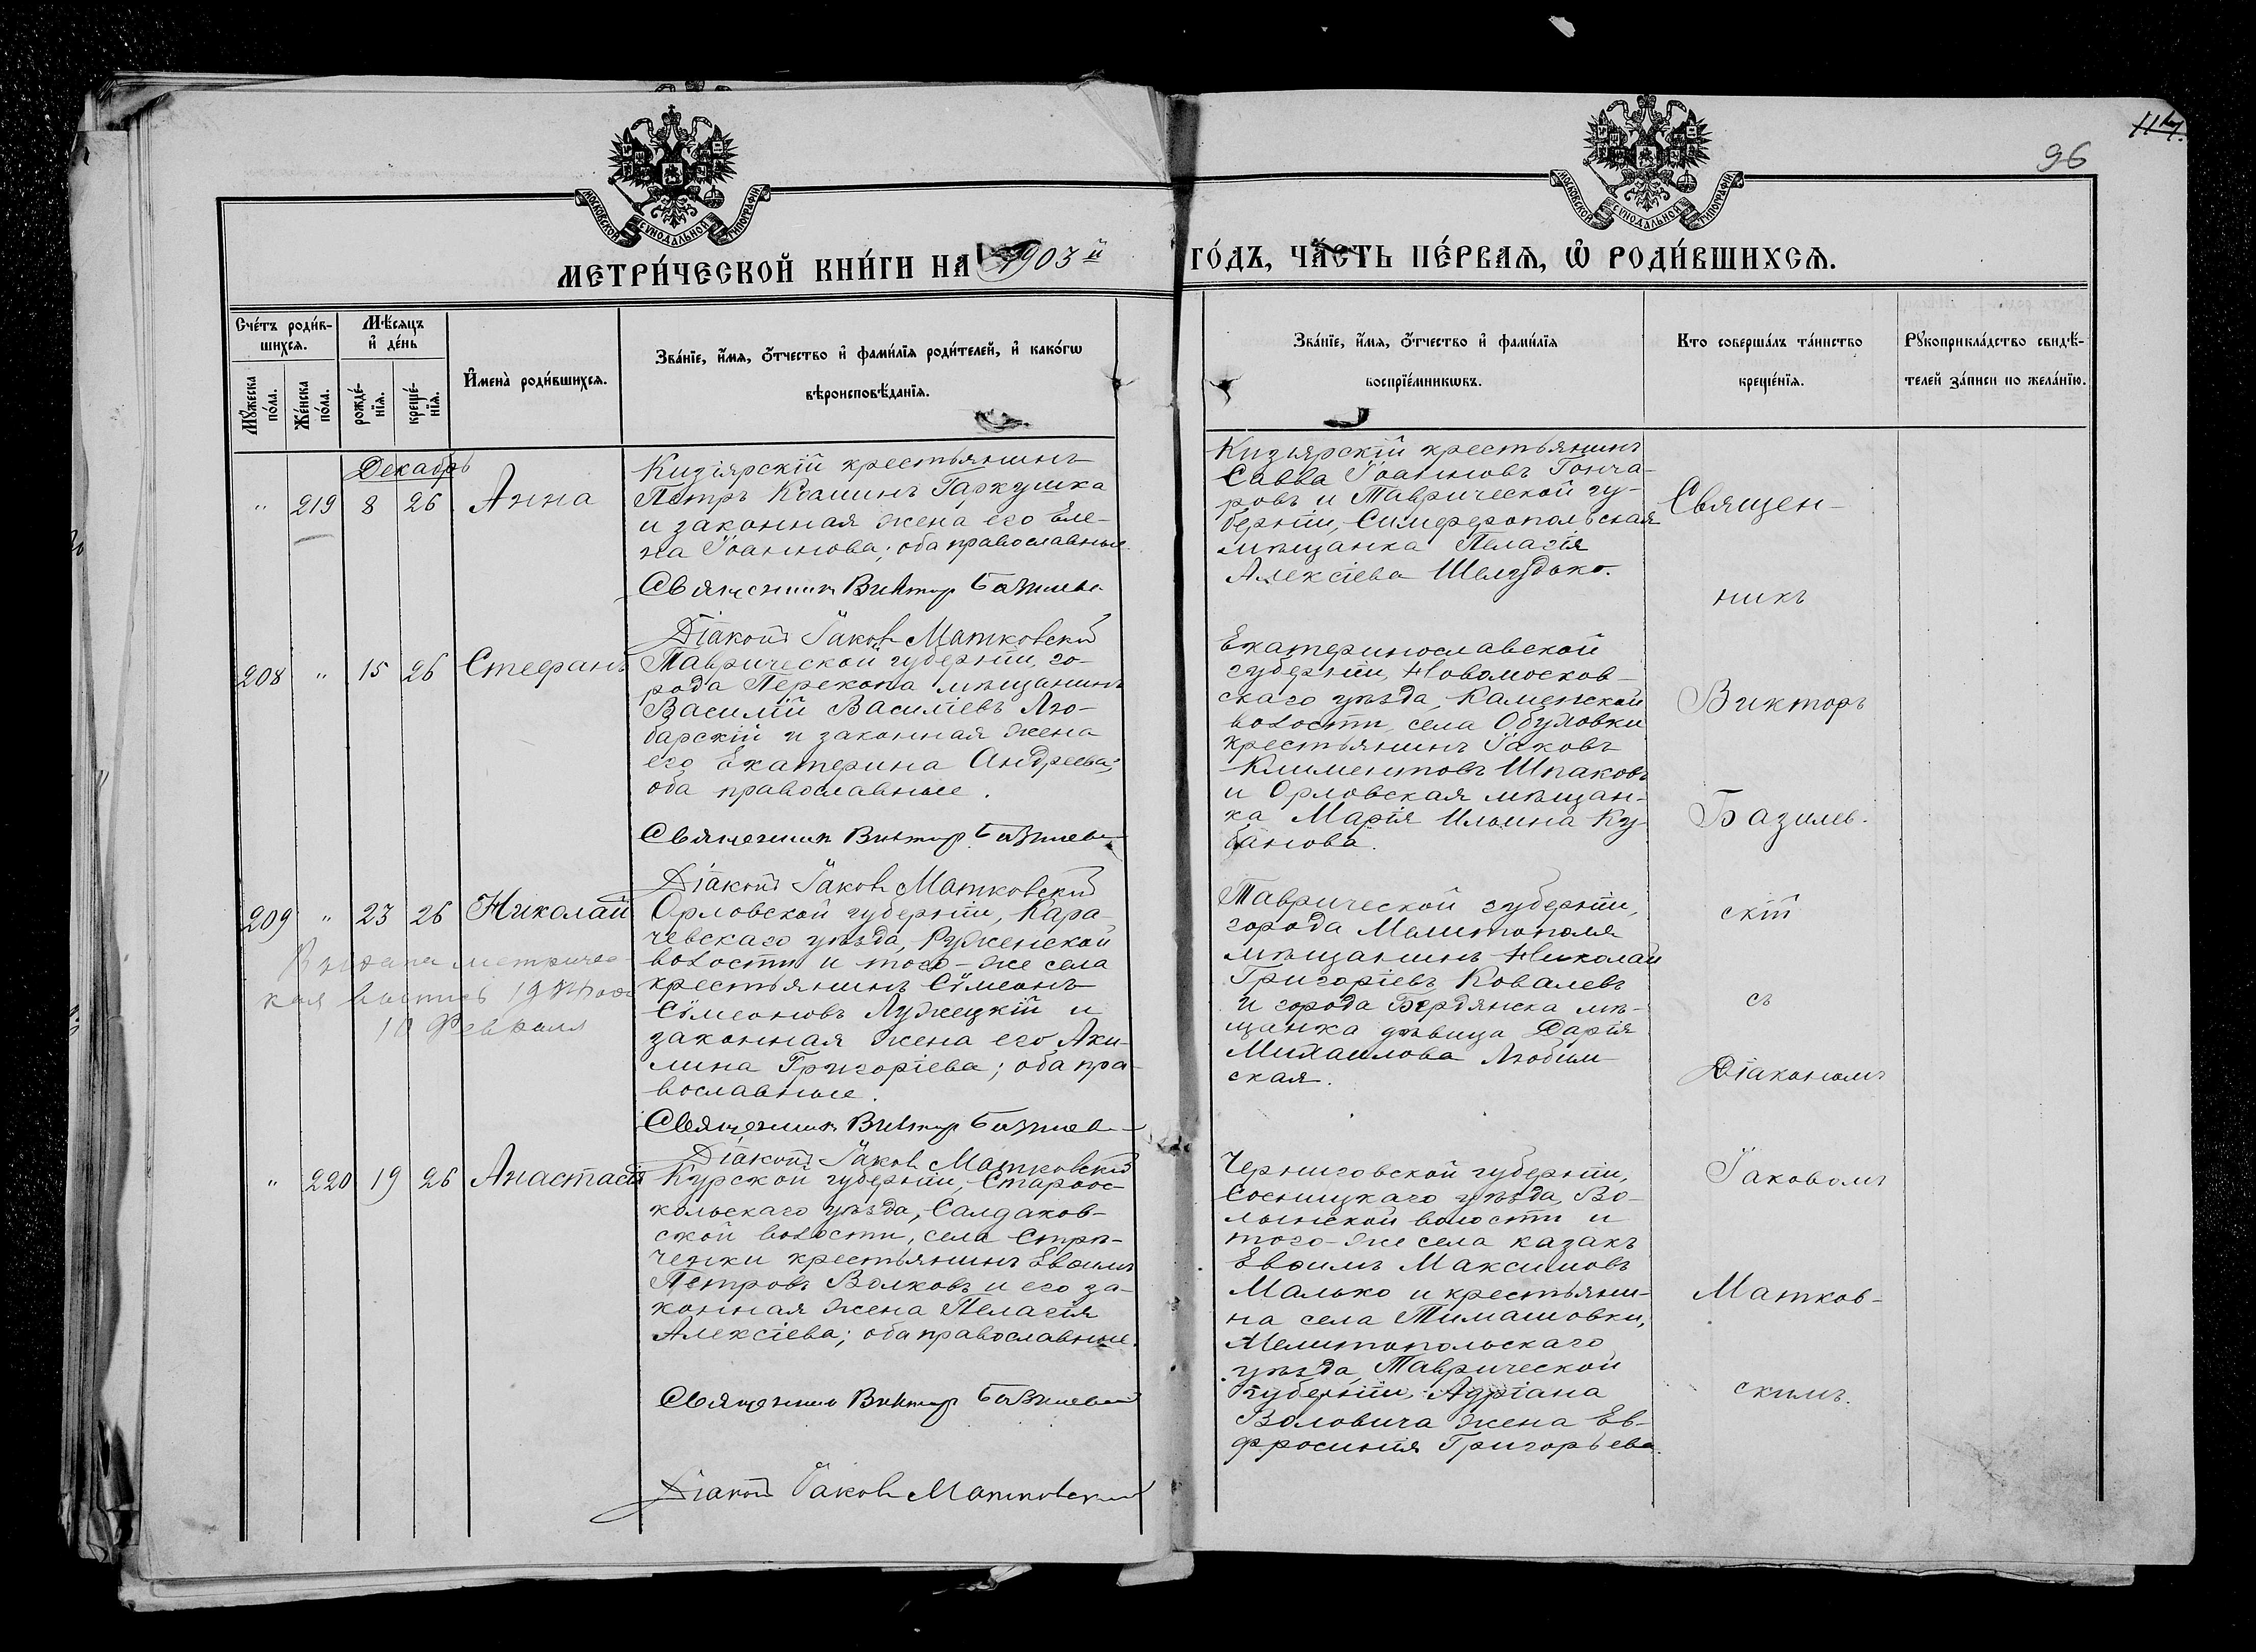 117.
96
МОСКОВСКОЙ СѴНОДАЛЬНОЙ ТИПОГРАФІИ
МОСКОВСКОЙ СѴНОДАЛЬНОЙ ТИПОГРАФІИ
МЕТРИ́ЧЕСКОЙ КНИ́ГИ НА 1903й ГО́ДЪ, ЧА́СТЬ ПЕ́РВАЯ, Ѡ РОДИ́ВШИХСЯ.
Сче́тъ роди́в-
шихся.
Мꙋ́жеска по́ла.
Же́нска по́ла.
Мѣ́сяцъ и де́нь
рожде́-
нїя.
креще́-
нїя.
Имена̀ роди́вшихся.
Зва́нїе, и́мя, ѻ́тчество и фами́лїя роди́телей, и како́гѡ
вѣроисповѣ́данїя.
Зва́нїе, и́мя, ѻ́тчество и фами́лїя
воспрїе́мникѡвъ.
Кто соверша́лъ та́инство
креще́нїя.
Рꙋкоприкла́дство свидѣ́-
телей за́писи по жела́нїю.
Декабрь
" 219 8 26 Анна
Кизіярскій крестьянинъ
Петръ Ѳоминъ Гаркушка
и законная жена его Еле-
на Іоаннова; оба православные.
Священникъ Викторъ Базилев
Діаконъ Іаковъ Матковскій
Кизіярскій крестьянинъ
Савва Іоанновъ Гонча-
ровъ и Таврической гу-
берніи, Симферопольская
мѣщанка Пелагія
Алексіева Шелудько.
208 " 15 26 Стефанъ
Таврической губерніи, го-
рода Перекопа мѣщанинъ
Василій Василіевъ Лю-
барскій и законная жена
его Екатерина Андреева;
оба православные.
Священникъ Викторъ Базилев
Діаконъ Іаковъ Матковскій
Екатеринославской
губерніи, Новомосков-
скаго уѣзда, Каменской
волости, села Обуховки
крестьянинъ Іаковъ
Климентовъ Шпаковъ
и Орловская мѣщан-
ка Марія Ильина Ку-
банова.
209 " 23 26 Николай
Выдана метричес-
кая выпись
10 Февраля
Орловской губерніи, Кара-
чевскаго уѣзда, Руженской
волости и того-же села
крестьянинъ Сѷмеонъ
Сѷмеоновъ Лужецкій и
законная жена его Аки-
лина Григоріева; оба пра-
вославные.
Священникъ Викторъ Базилев
Діаконъ Іаковъ Матковскій
Таврической губерніи,
города Мелитополя
мѣщанинъ Николай
Григоріевъ Ковалевъ
и города Бердянска мѣ-
щанка дѣвица Дарія
Михаилова Любим-
ская.
" 220 19 26 Анастасія
Курской губерніи, Староос-
кольскаго уѣзда, Салдаков-
ской волости, села
крестьянинъ Евѳимъ
Петровъ Волковъ и его за-
конная жена Пелагія
Алексіева; оба православные.
Священникъ Викторъ Базилев
Діаконъ Іаковъ Матковскій
Черниговской губерніи,
Сосницкаго уѣзда, Во-
лынской волости и
того-же села казакъ
Евѳимъ Максимовъ
Малько и крестьяни-
на села Тимашовки,
Мелитопольскаго
уѣзда, Таврической
губерніи, Адріана
Воловича жена Ев-
фросинія Григорьева.
Священ-
никъ
Викторъ
Базилев-
скій
съ
Діакономъ
Іаковомъ
Матков-
скимъ.